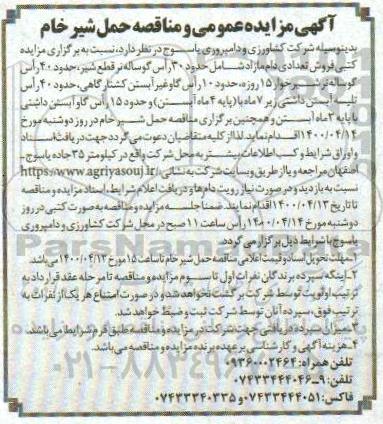 آگهی مزایده عمومی و مناقصه حمل شیر خام
بدینوسیله شرکت کشاورزی و دامپروری یاسوج در نظر دارد، نسبت به برگزاری مزایده
کتبی فروش تعدادی دام مازاد شامل حدود ۳۰ رأس گوساله نر قطع شیر، حدود ۲۰ رأس
گوساله نر شیرخوار ۱۵ روزه، حدود ۱۰ رأس گاو غیر آبستن کشتارگاهی، حدود ۴۰ رأس
تلیسه آبستن داشتی زیر ۷ ماه با (پایه ۴ ماه آبستن) و حدود ۱۵ رأس گاو آبستن داشتی
با پایه ۳ ماه آبستن و همچنین برگزاری مناقصه حمل شیر خام در روز دوشنبه مورخ
۱۴۰۰/۰۴/۱۴ اقدام نماید. لذا از کلیه متقاضیان دعوت می گردد جهت دریافت اسناد
و اوراق شرایط و کسب اطلاعات بیشتر به محل شرکت واقع در کیلومتر ۳۵ جاده یاسوج ـ
اصفهان مراجعه و یا از طریق وبسایت شرکت به نشانی https://www.agriyasouj.ir/
نسبت به بازدید و در صورت نیاز رویت دام ها و دریافت اعلام شرایط، اسناد مزایده و مناقصه
تا تاریخ ۱۴۰۰/۰۴/۱۳ اقدام نمایند. ضمنا جلسه مزایده و مناقصه به صورت کتبی در روز
دوشنبه مورخ ۱۴۰۰/۰۴/۱۴ رأس ساعت ۱۱ صبح در محل شرکت کشاورزی و دامپروری
یاسوج با شرایط ذیل برگزار می گردد.
۱ـ مهلت تحویل اسناد و قیمت اعلامی مناقصه حمل شیر خام تا ساعت ۱۵ مورخ ۱۴۰۰/۰۴/۱۲ می باشد.
۲ـ اینکه سپرده برندگان نفرات اول تا سوم مزایده و مناقصه تا مرحله عقد قرارداد به
ترتیب اولویت توسط شرکت برگشت نخواهد شد و در صورت امتناع هر یک از نفرات به
ترتیب فوق، سپرده آنان توسط شرکت ثبت و ضبط خواهد شد.
۳ـ میزان سپرده دریافتی جهت شرکت در مزایده و مناقصه طبق فرم شرایط می باشد.
۴ـ هزینه آگهی و کارشناسی بر عهده برنده مزایده و مناقصه می باشد.
تلفن همراه: ۰۹۳۶۰۰۰۲۴۶۴
تلفن: ۹ـ۰۷۴۳۳۴۴۴۰۴۶
فاکس: ۰۷۴۳۳۴۴۴۰۵۱ و ۰۷۴۳۳۳۴۰۳۳۵
ParsNamadData
۰۲۱-۸۸۳۴۹۶